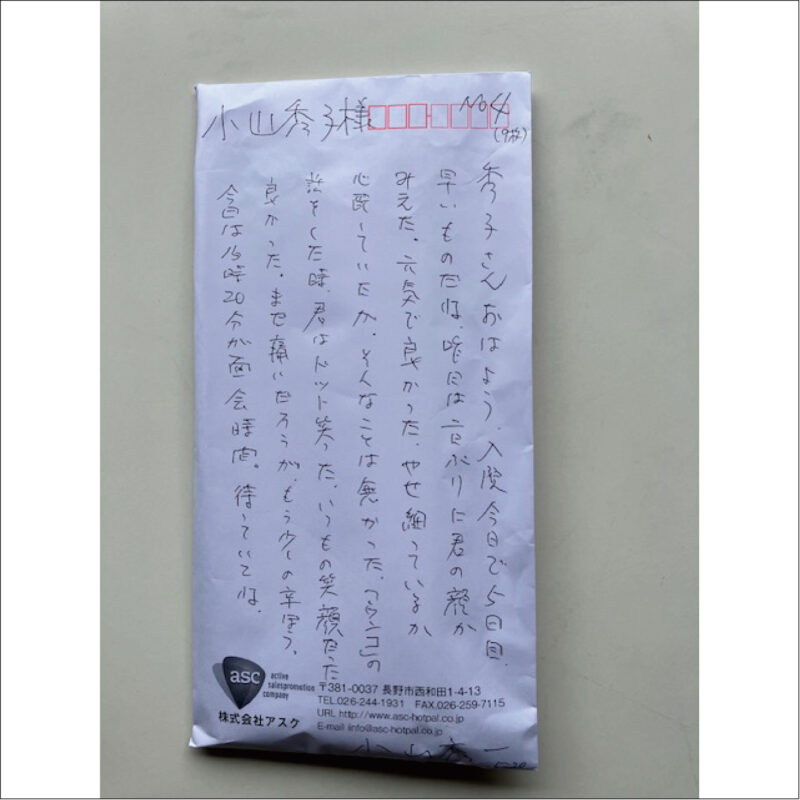 No4
(9枚)
小山秀子様
秀子さんおはよう、入院今日で5日目、
早いものだね、昨日は二日ぶりに君の顔が
みえた。元気で良かった、やせ細っているか
心配していたが、そんなことは無かった、「ウンコ」の
話をした時、君はドット笑った、いつもの笑顔だった
良かった。まだ痛いだろうが、もう少しの辛ぼう。
今日は15時20分が面会時間。待っていてね。
asc
active
salespromotion
company
株式会社アスク
〒381-0037 長野市西和田1-4-13
TEL.026-244-1931 FAX.026-259-7115
URL http://www.asc-hotpal.co.jp
E-mail iinfo@asc-hotpal.co.jp
小山